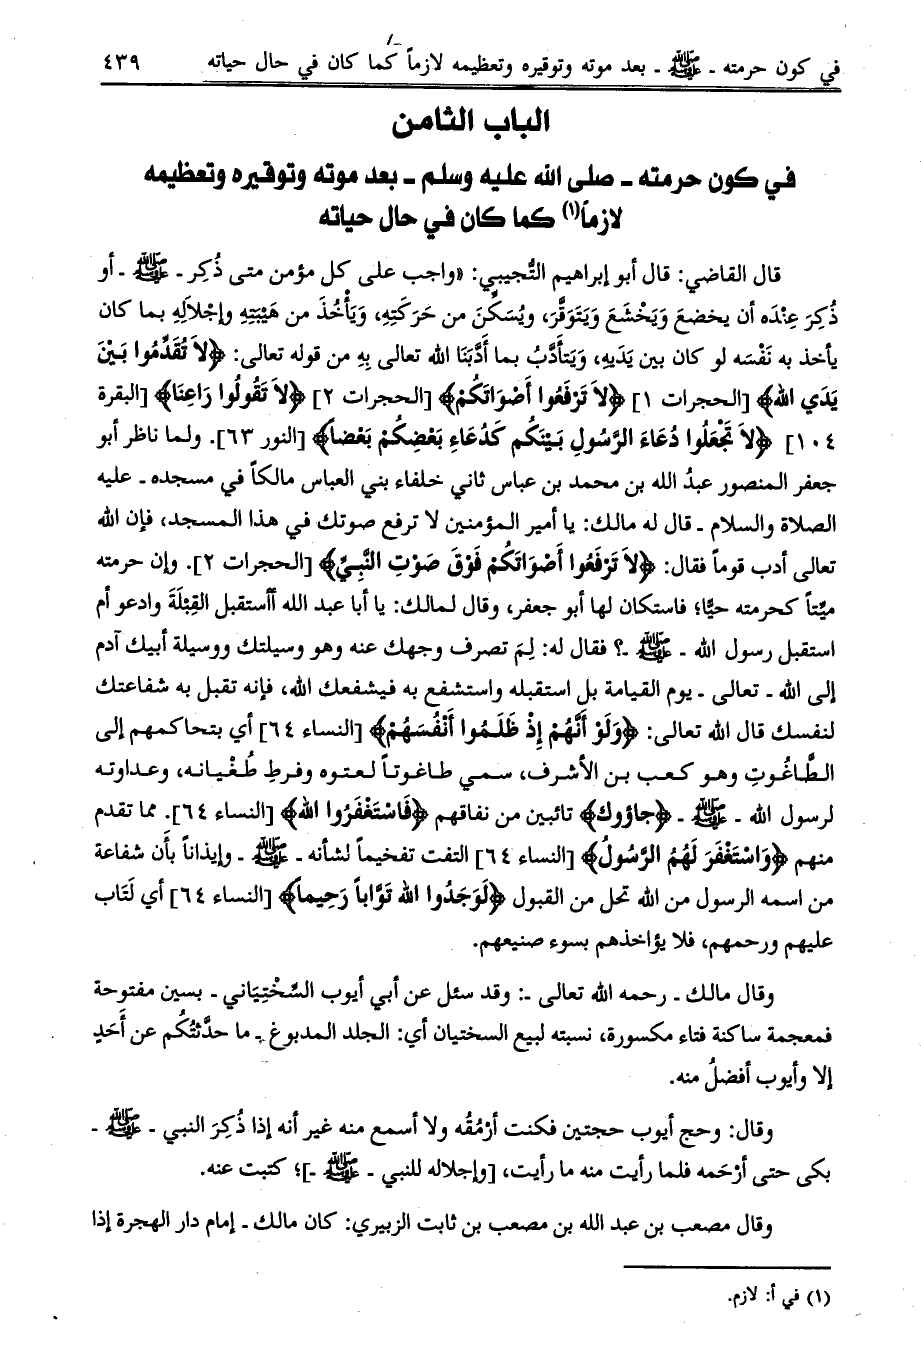 في كون حرمته ـ ﷺ ـ بعد موته وتوقيره وتعظيمه لازماً كما كان في حال حياته ٤٣٩
الباب الثامن
في كون حرمته ـ صلى الله عليه وسلم ـ بعد موته وتوقيره وتعظيمه
لازماً(١) كما كان في حال حياته
قال القاضي: قال أبو إبراهيم التُّجيبي: «واجب على كل مؤمن متى ذُكِر ـ ﷺ ـ أو
ذُكِرَ عِنْدَه أن يخضعَ وَيَخْشَعَ وَيَتَوَقَّرَ، ويُسَكِّنَ من حَرَكَتِهِ، وَيَأْخُذَ من هَيْبَتِهِ وإجْلالِهِ بما كان
يأخذ به نَفْسَه لو كان بين يَدَيهِ، وَيَتأدَّبُ بما أدَّبَنَا الله تعالى بِهِ من قوله تعالى: ﴿لاَ تُقَدِّمُوا بَيْنَ
يَدَي الله﴾ [الحجرات ١] ﴿لاَ تَرْفَعُوا أَصْوَاتَكُمْ﴾ [الحجرات ٢] ﴿لاَ تَقُولُوا رَاعِنَا﴾ [البقرة
١٠٤] ﴿لاَ تَجْعَلُوا دُعَاءَ الرَّسُولِ بَيْنَكُم كَدُعَاءِ بَعْضِكُمْ بَعْضاً﴾ [النور ٦٣]. ولما ناظر أبو
جعفر المنصور عبدُ الله بن محمد بن عباس ثاني خلفاء بني العباس مالكاً في مسجده ـ عليه
الصلاة والسلام ـ قال له مالك: يا أمير المؤمنين لا ترفع صوتك في هذا المسجد، فإن الله
تعالى أدب قوماً فقال: ﴿لاَ تَرْفَعُوا أَصْوَاتَكُمْ فَوْقَ صَوْتِ النَّبِيِّ﴾ [الحجرات ٢]. وإن حرمته
ميِّتاً كحرمته حيًّا؛ فاستكان لها أبو جعفر، وقال لمالك: يا أبا عبد الله أأستقبل القِبْلَةَ وادعو أم
استقبل رسول الله ـ ﷺ ـ؟ فقال له: لِمَ تصرف وجهك عنه وهو وسيلتك ووسيلة أبيك آدم
إلى الله ـ تعالى ـ يوم القيامة بل استقبله واستشفع به فيشفعك الله، فإنه تقبل به شفاعتك
لنفسك قال الله تعالى: ﴿وَلَوْ أَنَّهُمْ إِذْ ظَلَمُوا أَنْفُسَهُمْ﴾ [النساء ٦٤] أي بتحاكمهم إلى
الطَّاغُوتِ وهو كعب بن الأشرف، سمي طاغوتاً لعتوه وفرطِ طُغْيانه، وعداوته
لرسول الله ـ ﷺ ـ ﴿جاؤوك﴾ تائبين من نفاقهم ﴿فَاسْتَغْفَرُوا الله﴾ [النساء ٦٤]. مما تقدم
منهم ﴿وَاسْتَغْفَرَ لَهُمُ الرَّسُولُ﴾ [النساء ٦٤] التفت تفخيماً لشأنه ـ ﷺ ـ وإيذاناً بأَن شفاعة
من اسمه الرسول من الله تحل من القبول ﴿لَوَجَدُوا الله تَوَّاباً رَحِيماً﴾ [النساء ٦٤] أي لَتَاب
عليهم ورحمهم، فلا يؤاخذهم بسوء صنيعهم.
وقال مالك ـ رحمه الله تعالى ـ: وقد سئل عن أبي أيوب السَّخْتِيَاني ـ بسين مفتوحة
فمعجمة ساكنة فتاء مكسورة، نسبته لبيع السختيان أي: الجلد المدبوغ ـ ما حدَّثتُكُم عن أَحَدٍ
إلا وأيوب أفضلُ منه.
وقال: وحج أيوب حجتين فكنت أرْمُقُه ولا أسمع منه غير أنه إذا ذُكِرَ النبي ـ ﷺ ـ
بكى حتى أرْحَمه فلما رأيت منه ما رأيت، [وإجلاله للنبي ـ ﷺ ـ]؛ كتبت عنه.
وقال مصعب بن عبد الله بن مصعب بن ثابت الزبيري: كان مالك ـ إمام دار الهجرة إذا
(١) في أ: لازم.